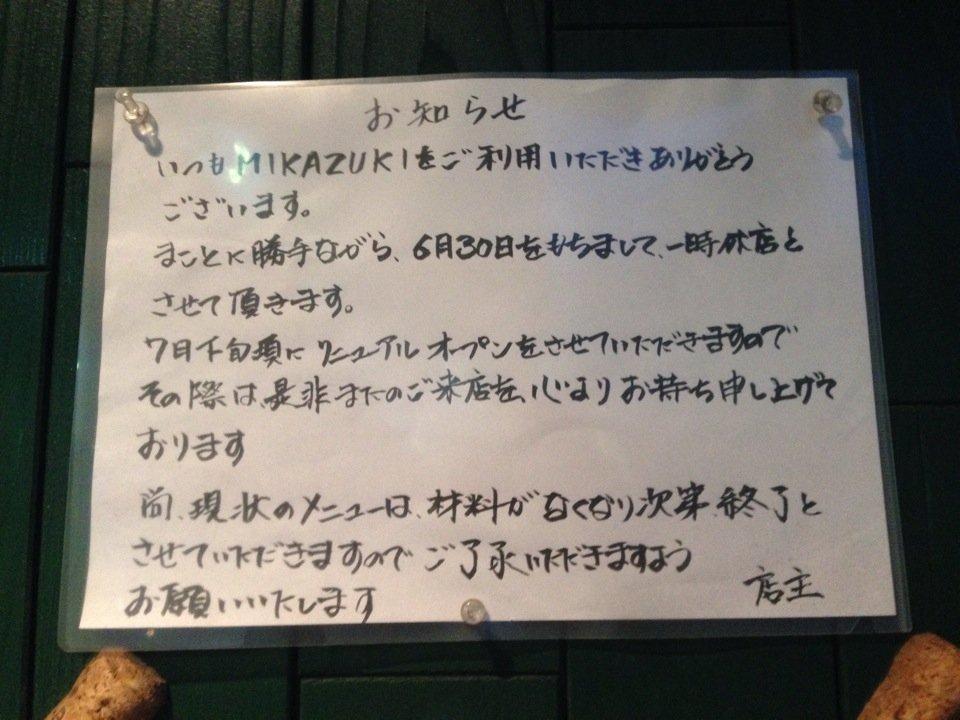 お知らせ
いつもMIKAZUKIをご利用いただきありがとう
ございます。
まことに勝手ながら、6月30日をもちまして、一時休店と
させて頂きます。
7月下旬頃に リニューアル オープンをさせていただきますので
その際は、是非またのご来店を、心よりお待ち申し上げて
おります
尚、現状のメニューは、材料がなくなり次第、終了と
させていただきますのでご了承いただきますよう
お願いいたします
店主